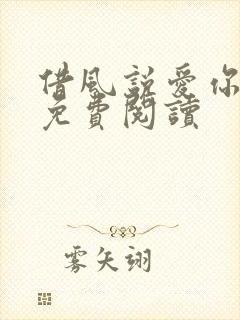 借風說愛你
免費閱讀
雾矢翊